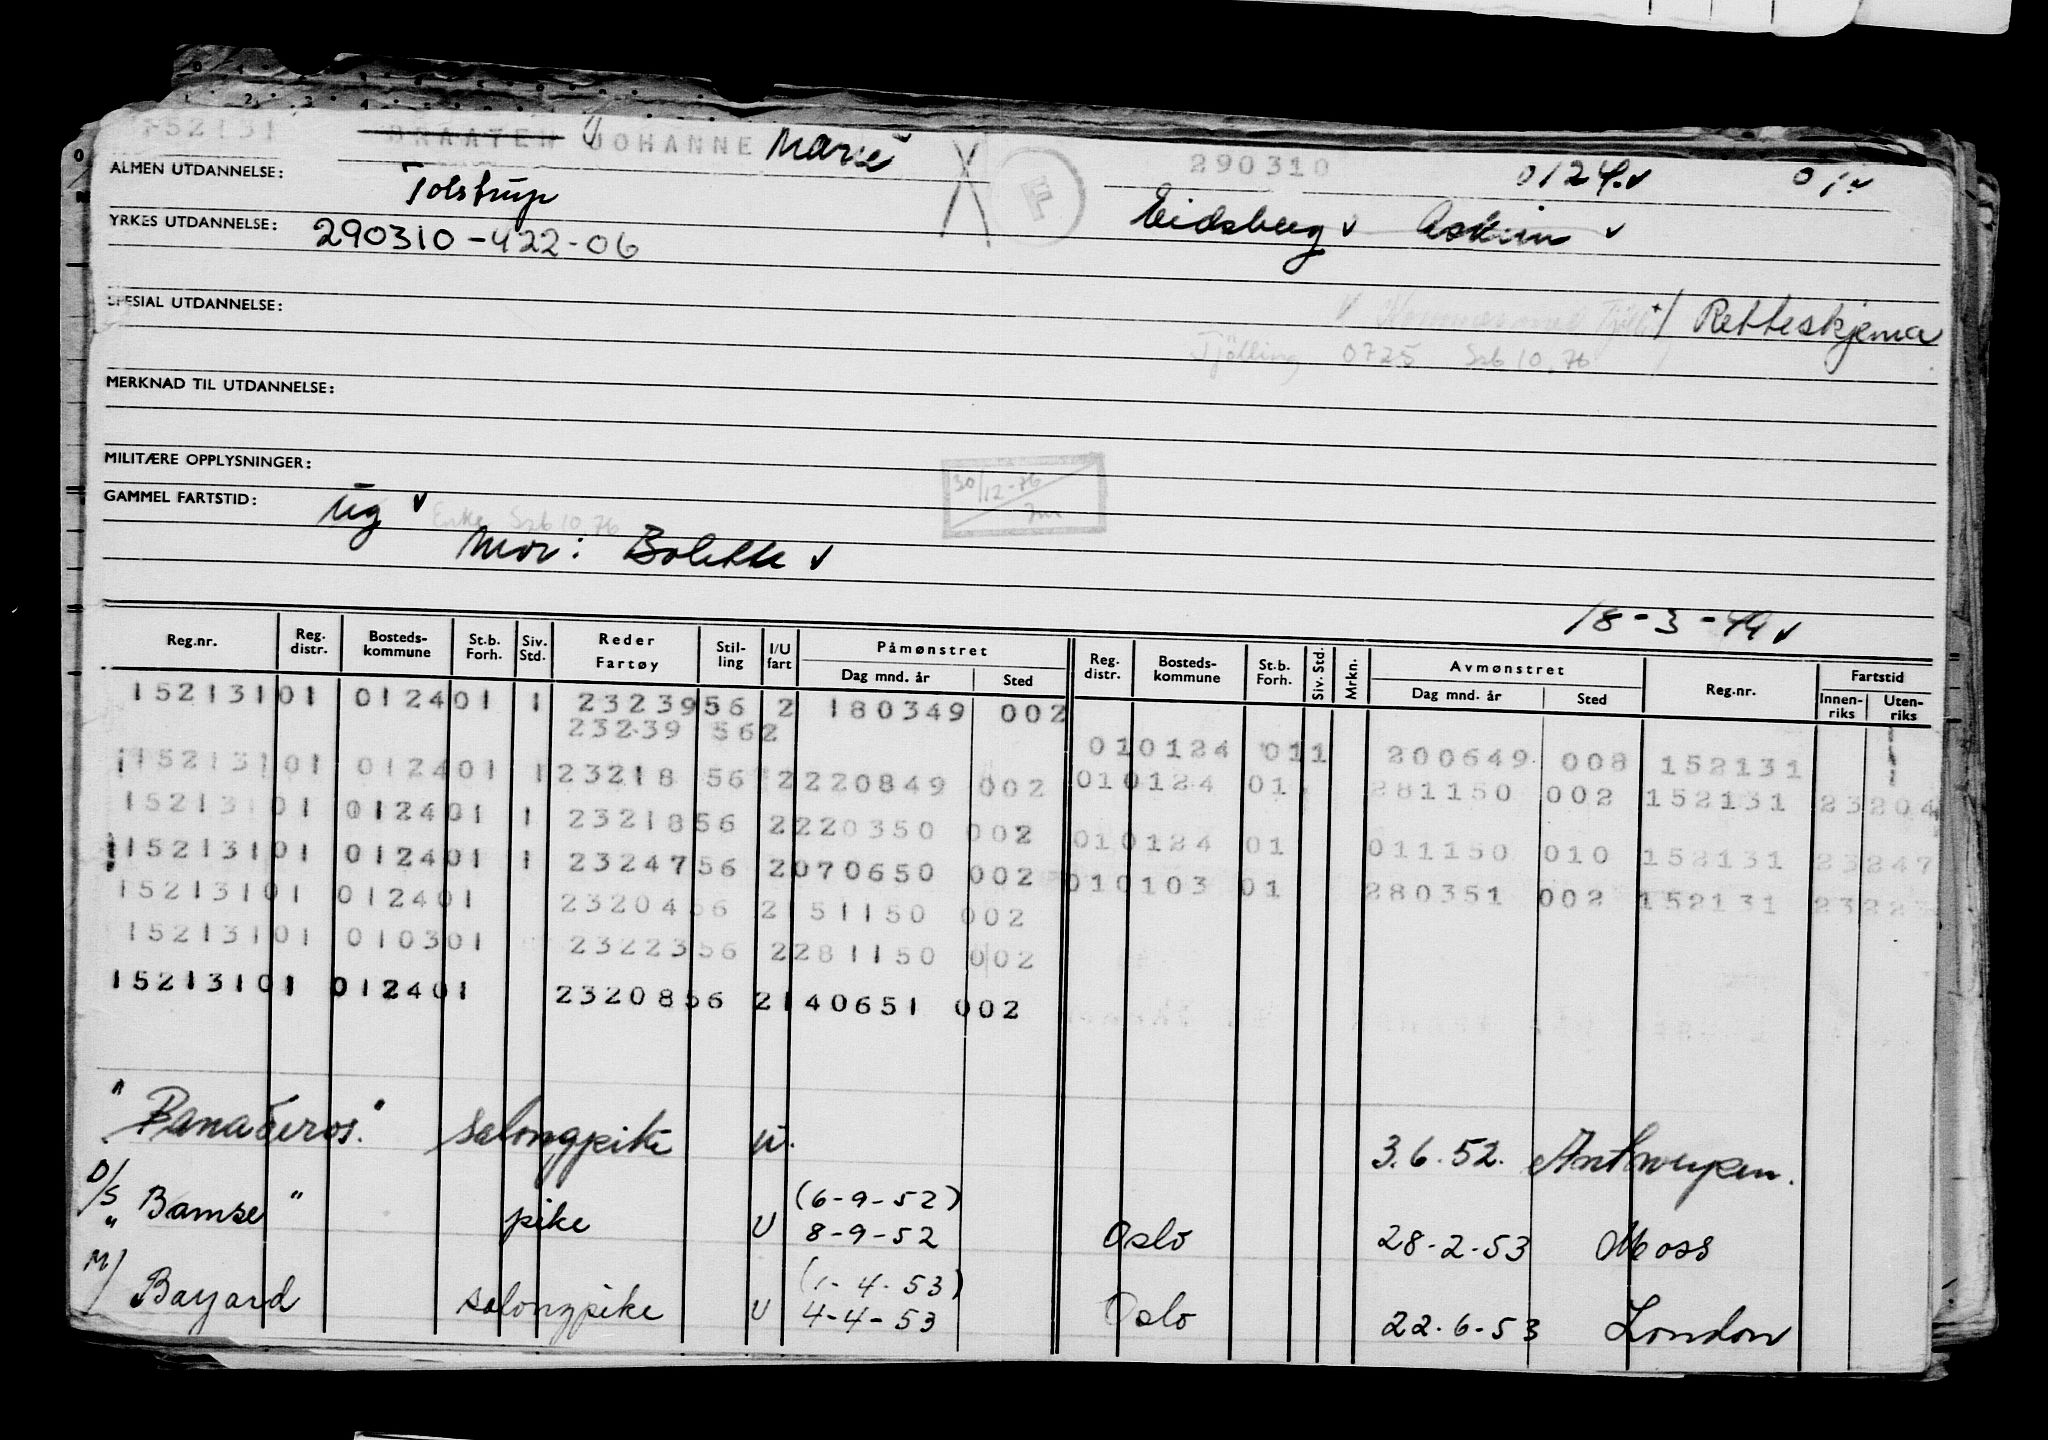 152131 BRAATEN JOHANNE Marie 290310 0124 01
ALMEN UTDANNELSE: Tolstrup F Eidsberg Askim
YRKES UTDANNELSE: 290310-422-06
SPESIAL UTDANNELSE: Retteskjema
Tjølling 0725 Ssb 10.76
MERKNAD TIL UTDANNELSE:
MILITÆRE OPPLYSNINGER: 30/12-76
GAMMEL FARTSTID: ug Enke Ssb 10.76
Mor: Bolette
18-3-49
Reg.nr. Reg. distr. Bosteds-kommune St.b. Forh. Siv. Std. Reder Fartøy Stil-ling I/U fart Påmønstret Dag mnd. år Sted Reg. distr. Bosteds-kommune St.b. Forh. Siv. Std. Mrkn. Avmønstret Dag mnd. år Sted Reg.nr. Fartstid Innen-riks Uten-riks
152131 01 0124 01 1 23239 56 2 180349 002
23239 56 2 01 0124 01 1 200649 008 152131
152131 01 0124 01 1 23218 56 2 220849 002 01 0124 01 281150 002 152131 23204
152131 01 0124 01 1 23218 56 2 220350 002 01 0124 01 011150 010 152131 23247
152131 01 0124 01 1 23247 56 2 070650 002 01 0103 01 280351 002 152131 23223
152131 01 0124 01 23204 56 2 151150 002
152131 01 0103 01 23223 56 2 281150 002
152131 01 0124 01 23208 56 2 140651 002
" Banaderos." salongpike u. 3.6.52. Antwerpen.
D/S " Bamse " pike U (6-9-52) 8-9-52 Oslo 28-2-53 Moss
M/ Bayard salongpike U (1-4-53) 4-4-53 Oslo 22-6-53 London